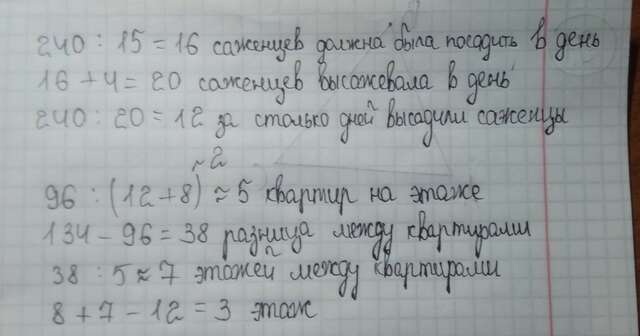 240 : 15 = 16 саженцев должна была посадить в день
16 + 4 = 20 саженцев высожевала в день
240 : 20 = 12 за столько дней высадили саженцы
~2
96 : (12+8) ≈ 5 квартир на этаже
134 - 96 = 38 разница между квартирами
38 : 5 ≈ 7 этажей между квартирами
8 + 7 - 12 = 3 этаж